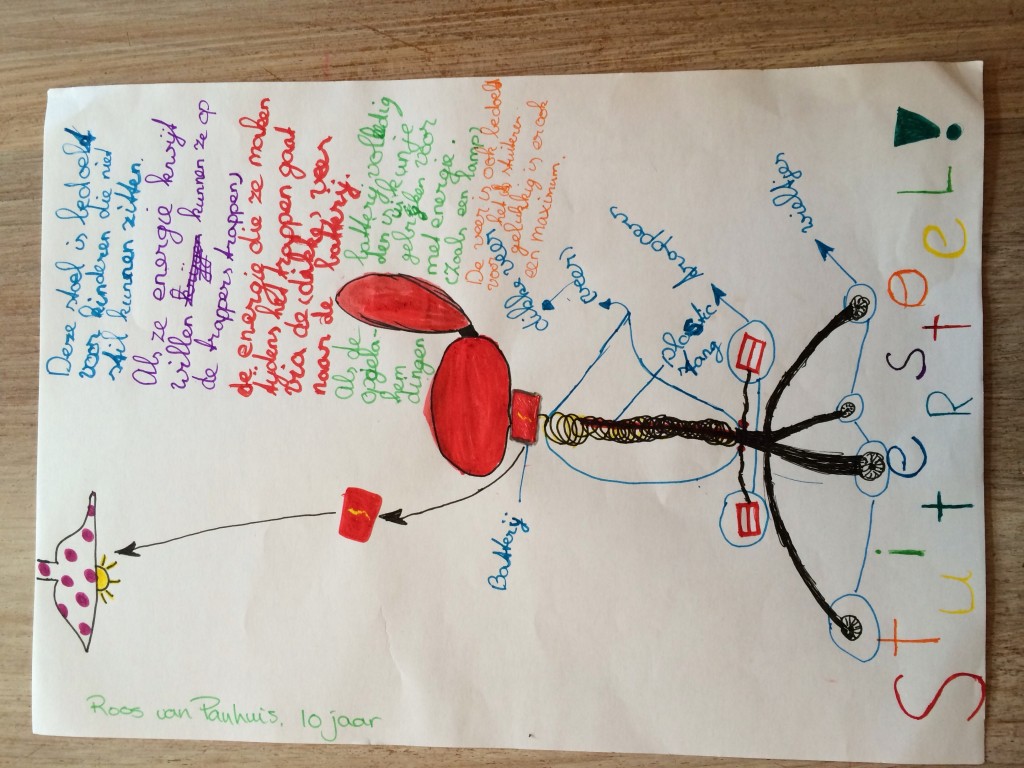 Deze stoel is bedoelt
voor kinderen die niet
stil kunnen zitten.
Als ze energie kwijt
willen kunnen ze op
de trappers trappen,
de energie die ze maken
tijdens het trappen gaat
via de (dikke) veer
naar de batterij.
Als de battery volledig
opgela- den is, kun je
hem gebruiken voor
dingen met energie.
(zoals een lamp)
De veer is ook bedoelt
voor het stuiteren
gelukkig is er ook
een maximum.
dikke veer
veer
Batterij
plastic
stang
trapper
wieltjes
StuiteRstoeL!
Roos van Panhuis, 10 jaar